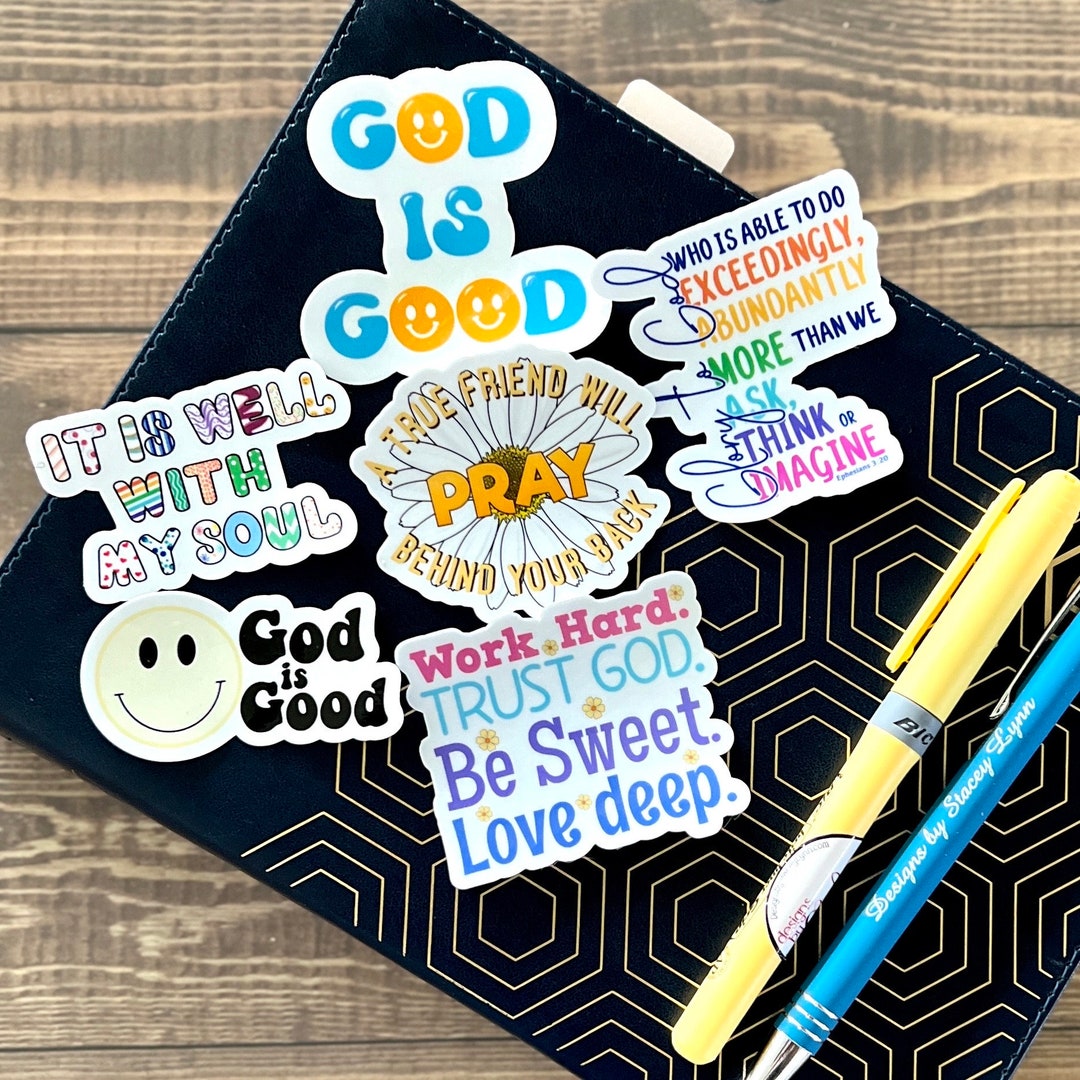 GOD
IS
GOOD
To God
WHO IS ABLE TO DO
EXCEEDINGLY,
ABUNDANTLY
MORE THAN WE
ASK,
Glory
THINK OR
IMAGINE
Ephesians 3:20
IT IS WELL
WITH
MY SOUL
A TRUE FRIEND WILL
PRAY
BEHIND YOUR BACK
God
is
Good
Work Hard.
TRUST GOD.
Be Sweet.
Love deep.
BIC
designs
Designs by Stacey Lynn